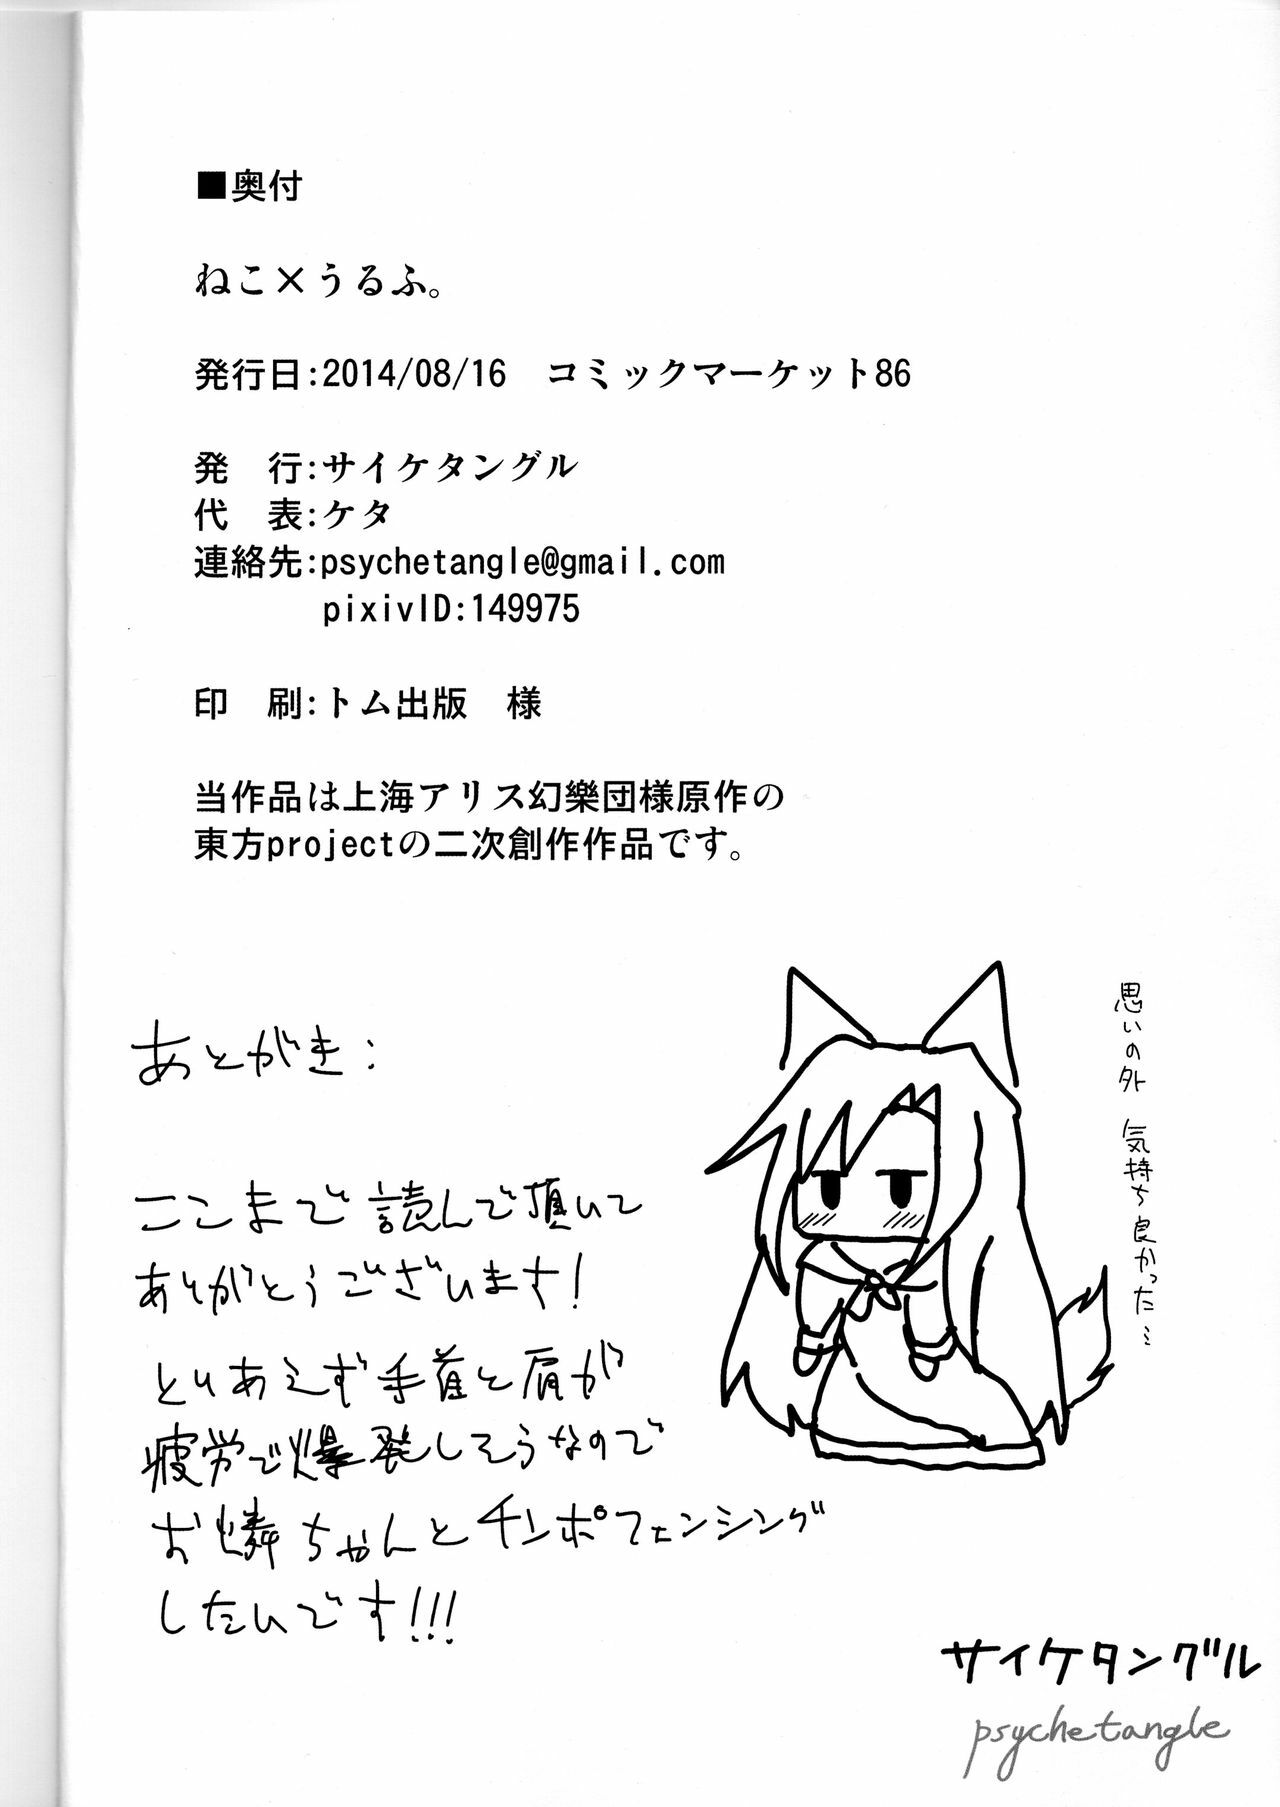 ■奥付
ねこ×うるふ。
発行日:2014/08/16　コミックマーケット86
発　行:サイケタングル
代　表:ケタ
連絡先:psychetangle@gmail.com
pixivID:149975
印　刷:トム出版　様
当作品は上海アリス幻樂団様原作の
東方projectの二次創作作品です。
思いの外 気持ち良かった…
あとがき:
ここまで読んで頂いて
ありがとうございます!
とりあえず手首と肩が
疲労で爆発しそうなので
お燐ちゃんとチンポフェンシング
したいです!!!
サイケタングル
psychetangle